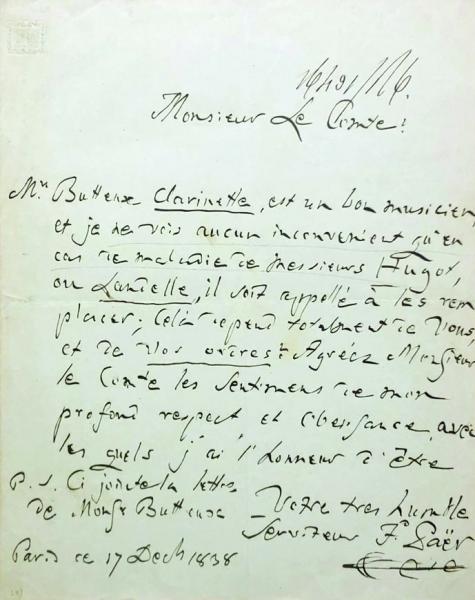 Monsieur Le Comte!
Mr. Butteux Clarinette, est un bon musicien,
et je ne vois aucun inconvenient qu'en
cas de maladie de messieurs Hugot,
ou Landelle, il soit appellé à les rem
placer; Celà depend totalment de Vous,
et de Vos ordres. Agréez Monsieur
le Comte les sentimens de mon
profond respect et obeissance, avec
les quels j'ai l'honneur d'être
P. S. Ci jointe la lettre
de Monsr Butteux
Votre tres humble
Serviteur F. Paër
Paris ce 17 Decb 1838